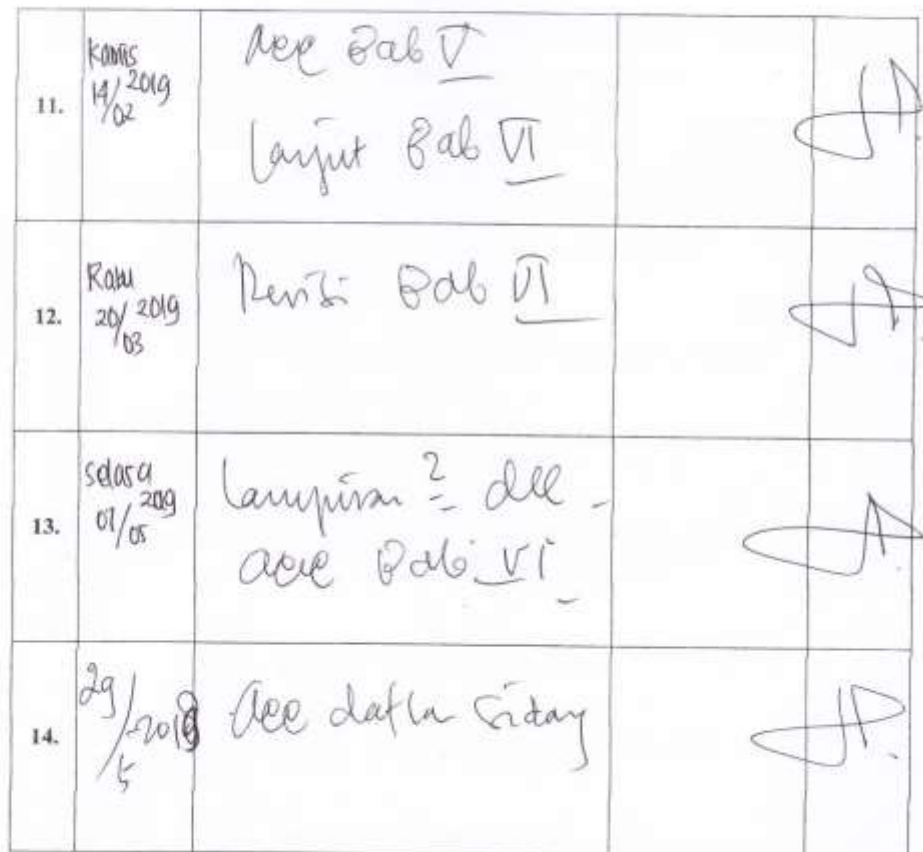 11.
Kamis
14/02 2019
Acc Bab V
Lanjut Bab VI
12.
Rabu
20/03 2019
Revisi Bab VI
13.
Selasa
07/05 2019
Lampiran 2 dll -
acc Bab VI -
14.
29/5-2019
Acc daftar sidang